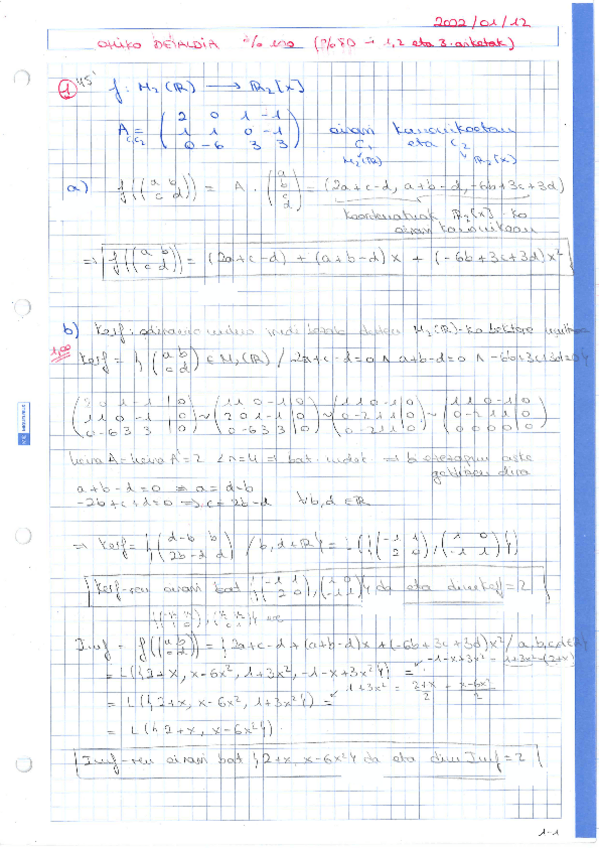 2022/01/12
OHIKO DEIALDIA % 100 (% 70 → 1,2 eta 3. ariketak)
1 45' f: M₂(ℝ) → ℝ₂[x]
A_{C₁C₂} = ( 2 0 1 -1 / 1 1 0 -1 / 0 -6 3 3 ) oinarri kanonikoetan
C₁ eta C₂
M₂(ℝ) ℝ₂[x]
a) f((a b / c d)) = A · (a / b / c / d) = (2a+c-d, a+b-d, -6b+3c+3d)
koordenatuak ℝ₂[x]-ko
oinarri kanonikoan
⇒ f((a b / c d)) = (2a+c-d) + (a+b-d)x + (-6b+3c+3d)x²
b) Kerf: M₂(ℝ)-ko bektore
1,00
Kerf = { (a b / c d) ∈ M₂(ℝ) / 2a+c-d=0 ∧ a+b-d=0 ∧ -6b+3c+3d=0 }
( 2 0 1 -1 | 0 / 1 1 0 -1 | 0 / 0 -6 3 3 | 0 ) ~ ( 1 1 0 -1 | 0 / 2 0 1 -1 | 0 / 0 -6 3 3 | 0 ) ~ ( 1 1 0 -1 | 0 / 0 -2 1 1 | 0 / 0 -2 1 1 | 0 ) ~ ( 1 1 0 -1 | 0 / 0 -2 1 1 | 0 / 0 0 0 0 | 0 )
heina A = heina A' = 2 < n=4 ⇒ bat. indet. ⇒ 2 ezezagun aske
geldituko dira
a+b-d=0 ⇒ a=d-b
-2b+c+d=0 ⇒ c=2b-d ∀b,d ∈ ℝ
⇒ Kerf = { (d-b b / 2b-d d) / b,d ∈ ℝ } = L({ (-1 1 / 2 0), (1 0 / -1 1) })
Kerf-ren oinarri bat { (-1 1 / 2 0), (1 0 / -1 1) } da eta dim Kerf = 2
Imf = f((a b / c d)) = { 2a+c-d + (a+b-d)x + (-6b+3c+3d)x² / a,b,c,d ∈ ℝ }
= L({2+x, x-6x², 1+3x², -1-x+3x²}) = -1-x+3x² = 1+3x²-(2+x)
= L({2+x, x-6x², 1+3x²}) = 1+3x² = (2+x)/2 - (x-6x²)/2
= L({2+x, x-6x²})
Imf-ren oinarri bat {2+x, x-6x²} da eta dim Imf = 2
1-1